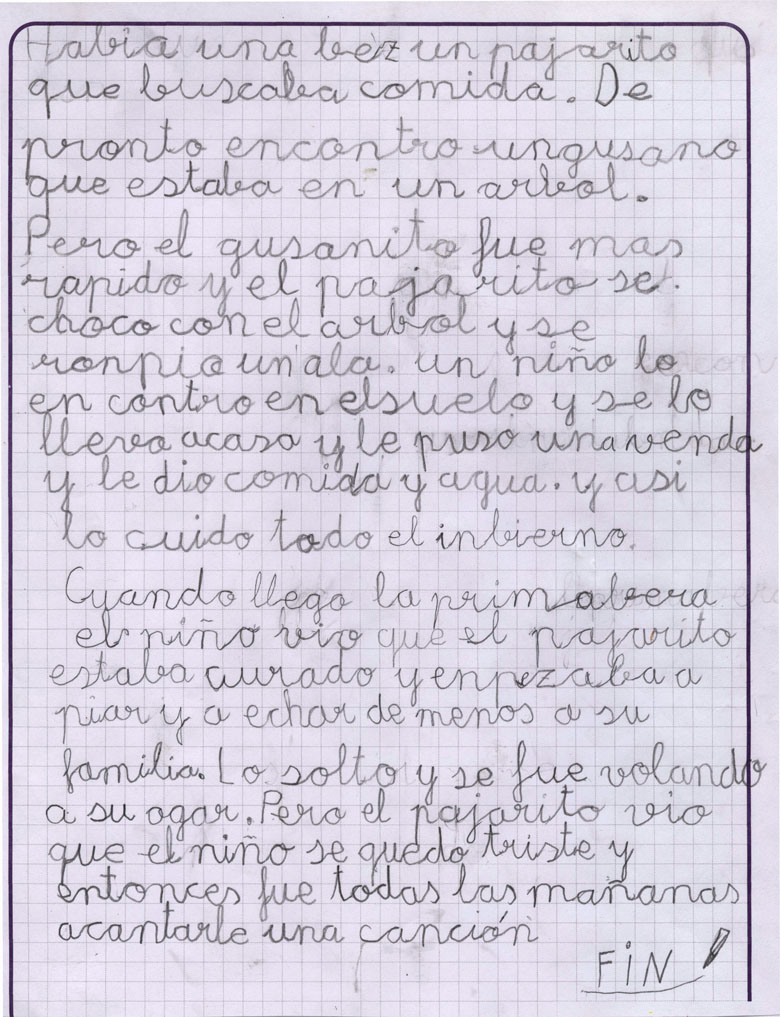 Habia una bez un pajarito
que buscaba comida. De
pronto encontro ungusano
que estaba en un arbol.
Pero el gusanito fue mas
rapido y el pajarito se
choco con el arbol y se
ronpio un ala. un niño lo
en contro en elsuelo y se lo
llevo acasa y le puso una venda
y le dio comida y agua. y asi
lo cuido todo el inbierno.
Cuando llego la primabera
el niño vio que el pajarito
estaba curado y enpezaba a
piar y a echar de menos a su
familia. Lo solto y se fue volando
a su ogar. Pero el pajarito vio
que el niño se quedo triste y
entonces fue todas las mañanas
acantarle una canción
FiN